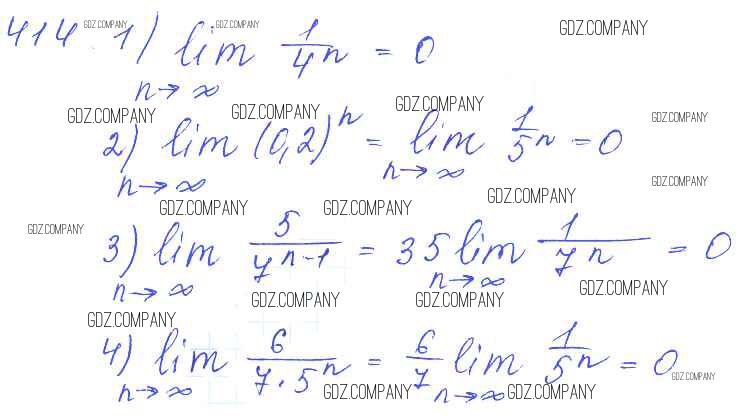 414. 1) lim 1/4^n = 0
n→∞
2) lim (0,2)^n = lim 1/5^n = 0
n→∞ n→∞
3) lim 5/7^(n-1) = 35 lim 1/7^n = 0
n→∞ n→∞
4) lim 6/(7·5^n) = 6/7 lim 1/5^n = 0
n→∞ n→∞
GDZ.COMPANY GDZ.COMPANY GDZ.COMPANY
GDZ.COMPANY GDZ.COMPANY GDZ.COMPANY GDZ.COMPANY
GDZ.COMPANY
GDZ.COMPANY GDZ.COMPANY GDZ.COMPANY
GDZ.COMPANY
GDZ.COMPANY GDZ.COMPANY GDZ.COMPANY
GDZ.COMPANY
GDZ.COMPANY GDZ.COMPANY GDZ.COMPANY